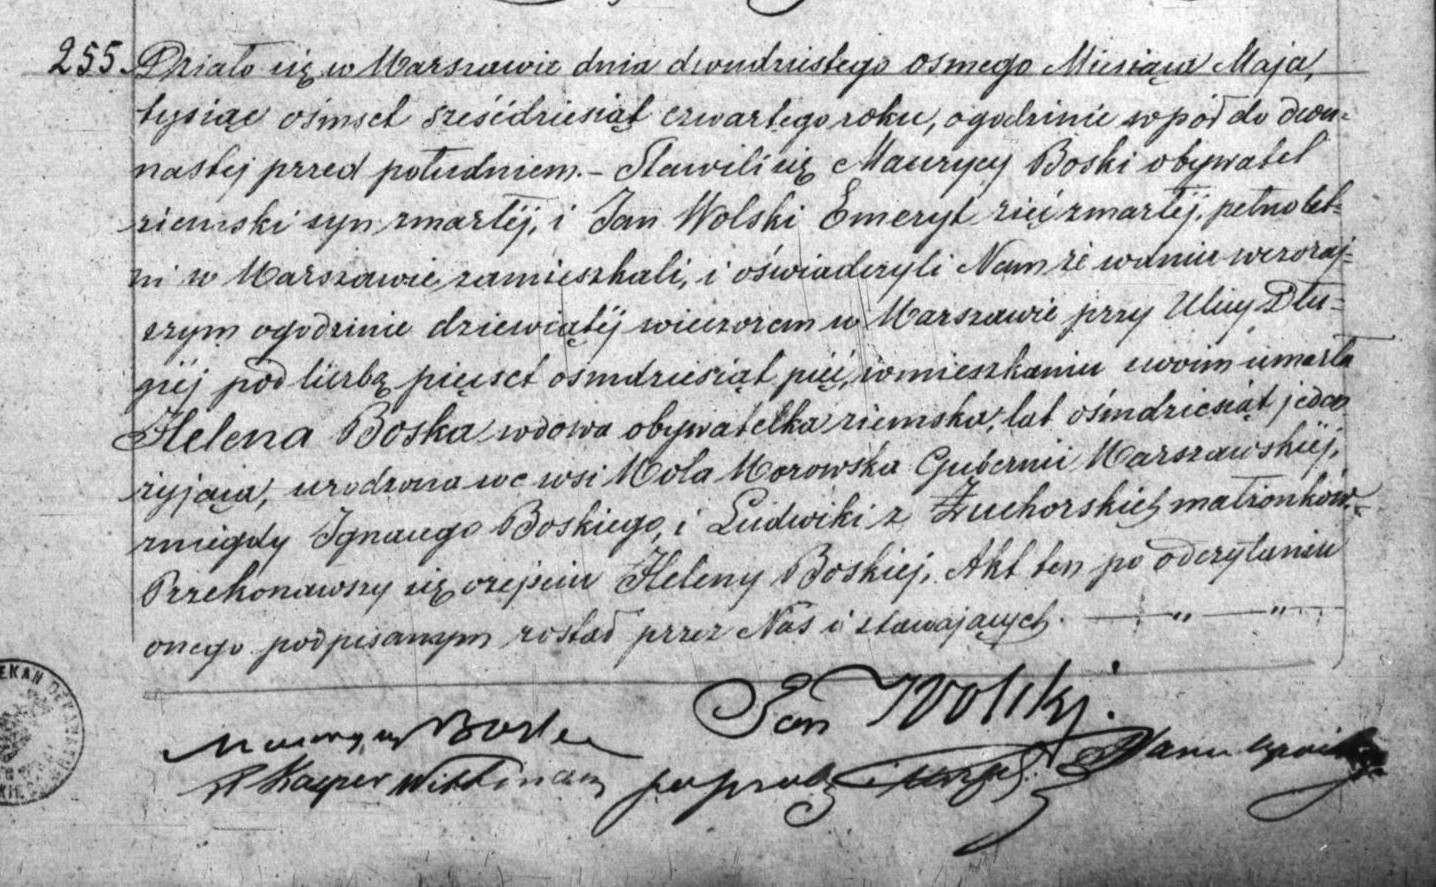 255. Działo się w Warszawie dnia dwudziestego osmego Miesiąca Maja,
tysiąc ośmset sześćdziesiąt czwartego roku, o godzinie wpół do dwu-
nastej przed południem. – Stawili się Maurycy Boski obywatel
ziemski syn zmarłéj, i Jan Wolski Emeryt zięć zmarłéj, pełnolet-
ni w Warszawie zamieszkali, i oświadczyli Nam że w dniu wczoraj-
szym o godzinie dziewiątéj wieczorem w Warszawie przy Ulicy Dłu-
giéj pod liczbą pięćset osmdziesiąt pięć, w mieszkaniu swoim umarła
Helena Boska wdowa obywatelka ziemska, lat ośmdziesiąt jeden
żyjąca, urodzona we wsi Wola Worowska Gubernii Warszawskiéj,
z niegdy Ignacego Boskiego, i Ludwiki z Żuchorskich małżonków.
Przekonawszy się o zejściu Heleny Boskiej, Akt ten po odczytaniu
onego podpisanym został przez Nas i stawających. — „ — „
Jan Wolski.
Maurycy Boski
X Kacper